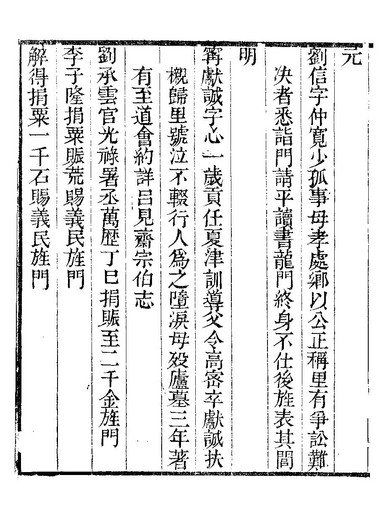 元
劉信字仲寬少孤事母孝處鄉以公正稱里有爭訟難
決者悉詣門請平讀書龍門終身不仕後旌表其閭
明
甯獻誠字心一歲貢任夏津訓導父令高密卒獻誠扶
櫬歸里號泣不輟行人爲之墮淚母殁廬墓三年著
有至道會約詳呂見齋宗伯志
劉承雲官光祿署丞萬歷丁巳捐賑至二千金旌門
李子隆捐粟賑荒賜義民旌門
解得捐粟一千石賜義民旌門